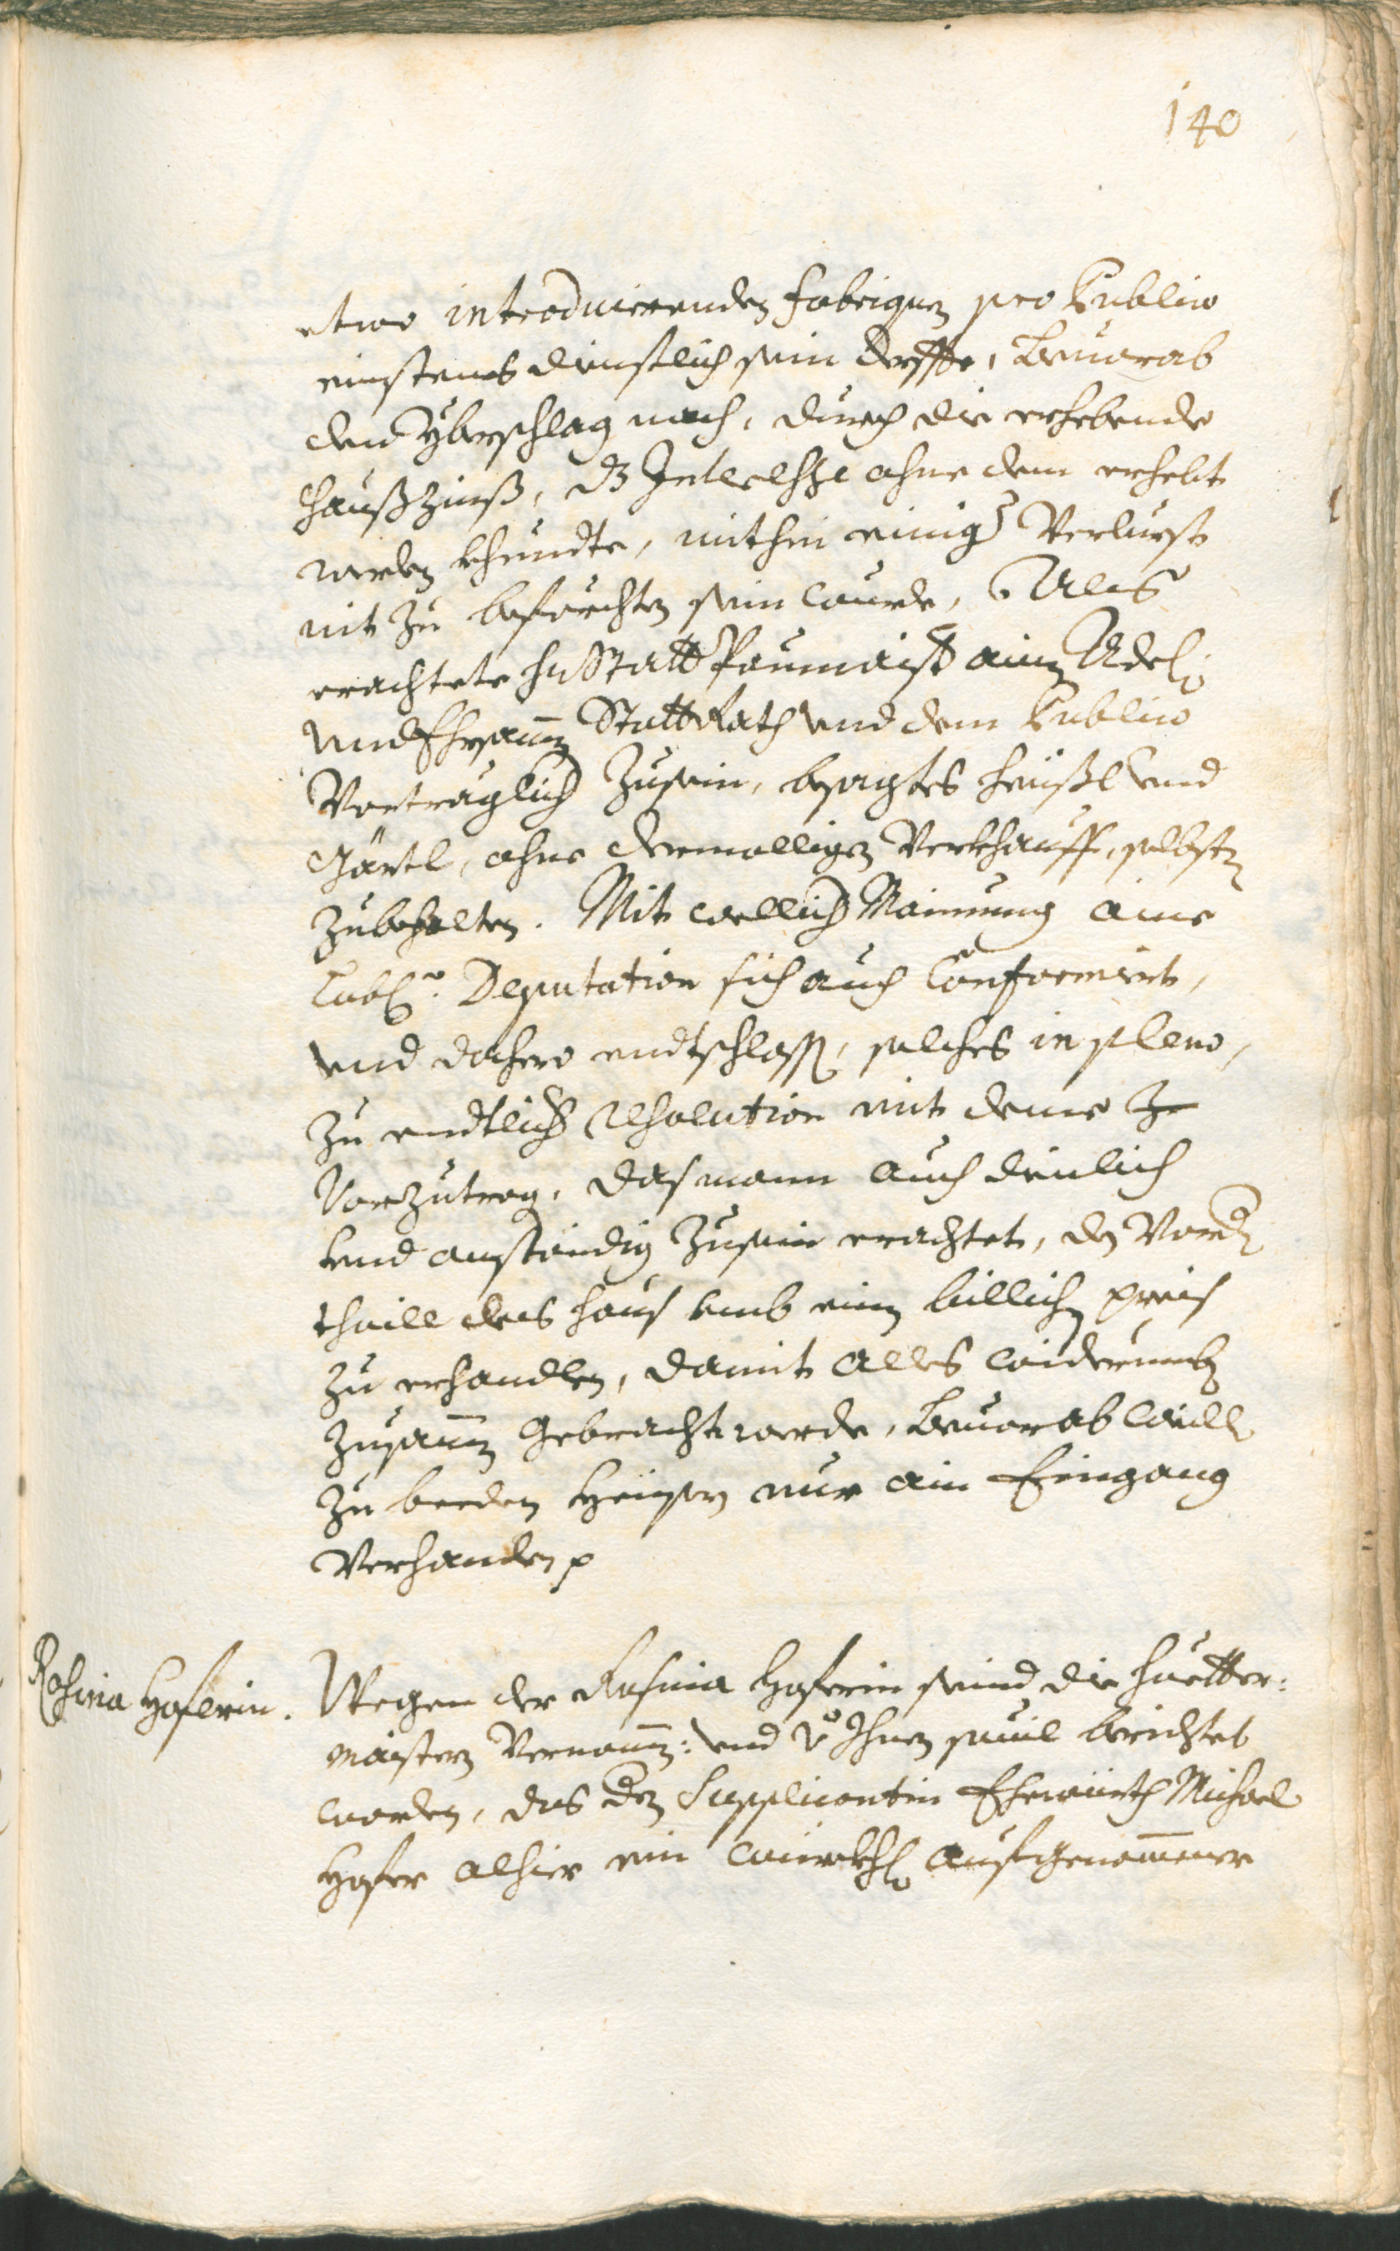 140
etwo introducierenden fabriquen pro Publico
einstens dienstlich sein derffte, Bevorab
dem Yberschlag nach, durch die erhebende
Haußzinß, dz Interesse ohne dem erhebt
werden khundte, mithin einiger Verlurst
nit zu beförchten sein wurde, Als
erachtete H: Statt Paumaister ainem Adel:
und Ehrsamen Statt Rath und dem Publico
Vorträglich zusein, besagtes Heüßl und
Gärtl, ohne dermalligen Verkhauff, selbsten
zubehalten. Mit wellicher Mainung aine
Lobl: Deputation sich auch Conformiert,
und dahero endtschlossen, solches in pleno,
zu endtlicher resolution mit deme
Vorzutragen, das mann auch dienlich
und anständig zusein erachtet, den Vordern
thaill des Haus umb einen billichen preis
zu erhandlen, damit alles widerumben
zusamen gebracht werde, bevorab weillen
zu beeden Heüsern nur ain Eingang
Verhanden p
Rosina Hoferin.
Wegen der Rosina Hoferin seind die Huetter:
maister Vernomen: und von Ihnen sovil berichtet
worden, das der Supplicantin Ehewürth Michael
Hofer alhier ein würckhl: aufgenommener